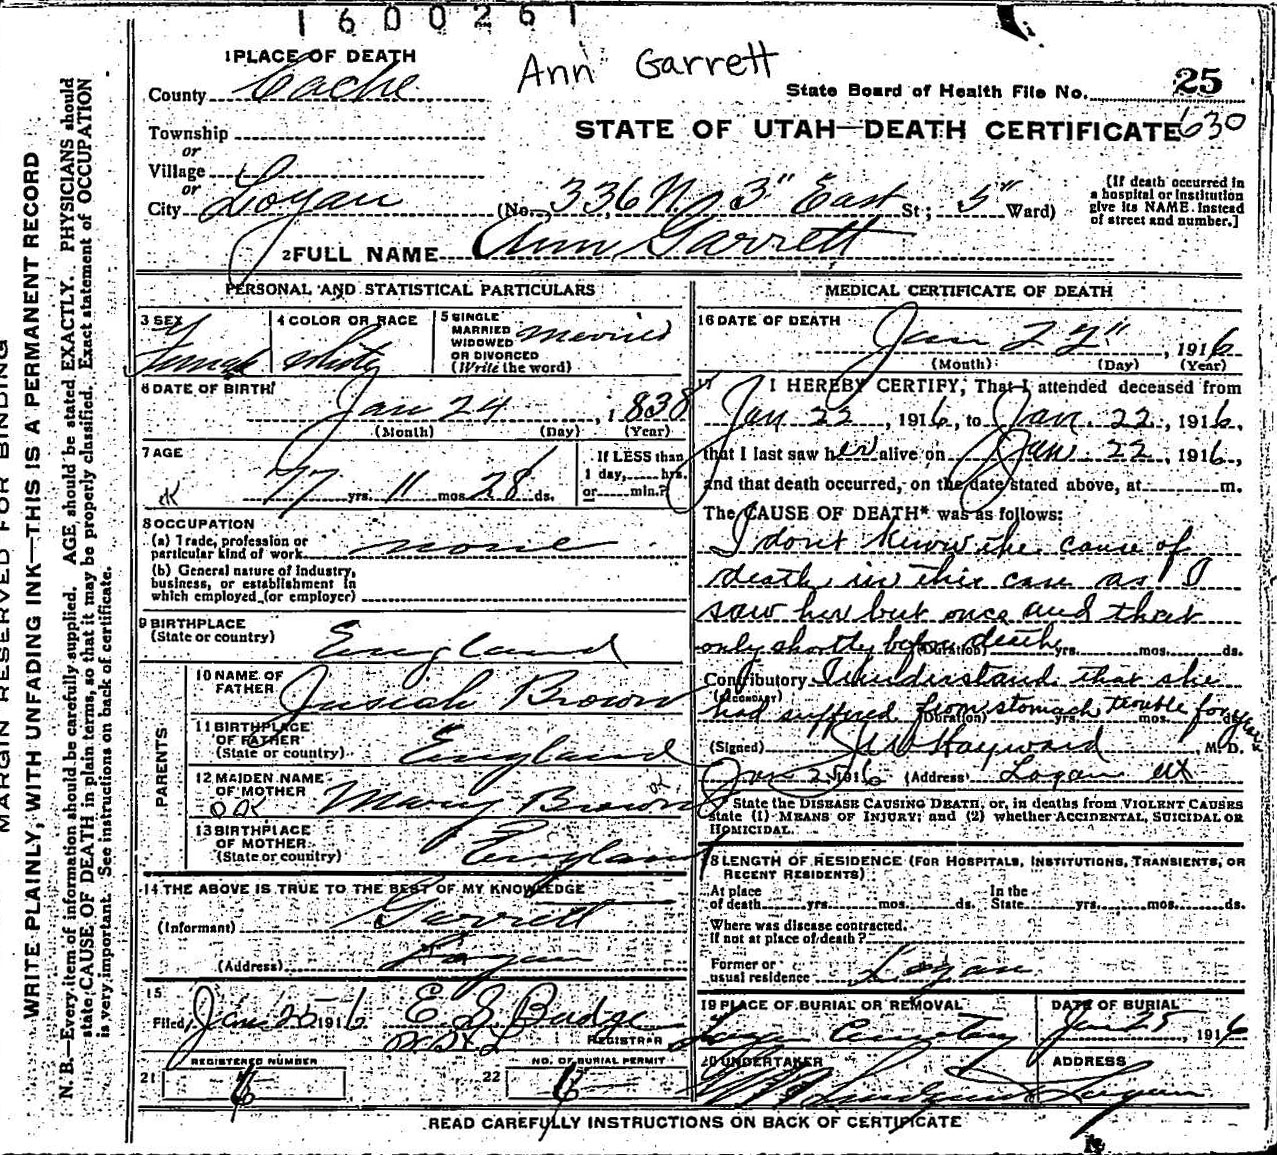 1600261
Ann Garrett
1 PLACE OF DEATH
County Cache
State Board of Health File No. 25
Township
or
STATE OF UTAH—DEATH CERTIFICATE 630
Village
or
City Logan (No. 336 No 3" East St; 5" Ward)
{If death occurred in a hospital or institution give its NAME instead of street and number.]
2 FULL NAME Ann Garrett
PERSONAL AND STATISTICAL PARTICULARS
3 SEX Female
4 COLOR OR RACE White
5 SINGLE MARRIED WIDOWED OR DIVORCED (Write the word) Married
6 DATE OF BIRTH
Jan 24, 1838
(Month) (Day) (Year)
7 AGE
77 yrs. 11 mos. 28 ds.
If LESS than 1 day, hrs. or min.?
8 OCCUPATION
(a) Trade, profession or particular kind of work none
(b) General nature of industry, business, or establishment in which employed (or employer)
9 BIRTHPLACE
(State or country) England
PARENTS
10 NAME OF FATHER Josiah Brown
11 BIRTHPLACE OF FATHER (State or country) England
12 MAIDEN NAME OF MOTHER Mary Brown
13 BIRTHPLACE OF MOTHER (State or country) England
14 THE ABOVE IS TRUE TO THE BEST OF MY KNOWLEDGE
(Informant) Garrett
(Address) Logan
15
Filed Jan 25 1916 E. S. Budge
REGISTRAR
REGISTERED NUMBER
21
NO. OF BURIAL PERMIT
22
MEDICAL CERTIFICATE OF DEATH
16 DATE OF DEATH
Jan 22", 1916
(Month) (Day) (Year)
17 I HEREBY CERTIFY, That I attended deceased from
Jan 22, 1916, to Jan. 22, 1916,
that I last saw her alive on Jan. 22, 1916,
and that death occurred, on the date stated above, at m.
The CAUSE OF DEATH* was as follows:
I dont know the cause of
death in this case as I
saw her but once and that
only shortly before death
(Duration) yrs. mos. ds.
Contributory I understand that she
(SECONDARY)
had suffered from stomach trouble for years
(Duration) yrs. mos. ds.
(Signed) Hayward, M. D.
Jan 25 1916 (Address) Logan Ut
* State the DISEASE CAUSING DEATH, or, in deaths from VIOLENT CAUSES
state (1) MEANS OF INJURY; and (2) whether ACCIDENTAL, SUICIDAL OR
HOMICIDAL.
18 LENGTH OF RESIDENCE (FOR HOSPITALS, INSTITUTIONS, TRANSIENTS, OR
RECENT RESIDENTS)
At place of death yrs. mos. ds. In the State yrs. mos. ds.
Where was disease contracted,
If not at place of death?
Former or usual residence Logan
19 PLACE OF BURIAL OR REMOVAL
Logan Cemetery
DATE OF BURIAL
Jan 25, 1916
20 UNDERTAKER
ADDRESS
Logan
READ CAREFULLY INSTRUCTIONS ON BACK OF CERTIFICATE
MARGIN RESERVED FOR BINDING
WRITE PLAINLY, WITH UNFADING INK—THIS IS A PERMANENT RECORD
N. B.—Every item of information should be carefully supplied. AGE should be stated EXACTLY. PHYSICIANS should
state CAUSE OF DEATH in plain terms, so that it may be properly classified. Exact statement of OCCUPATION
is very important. See instructions on back of certificate.